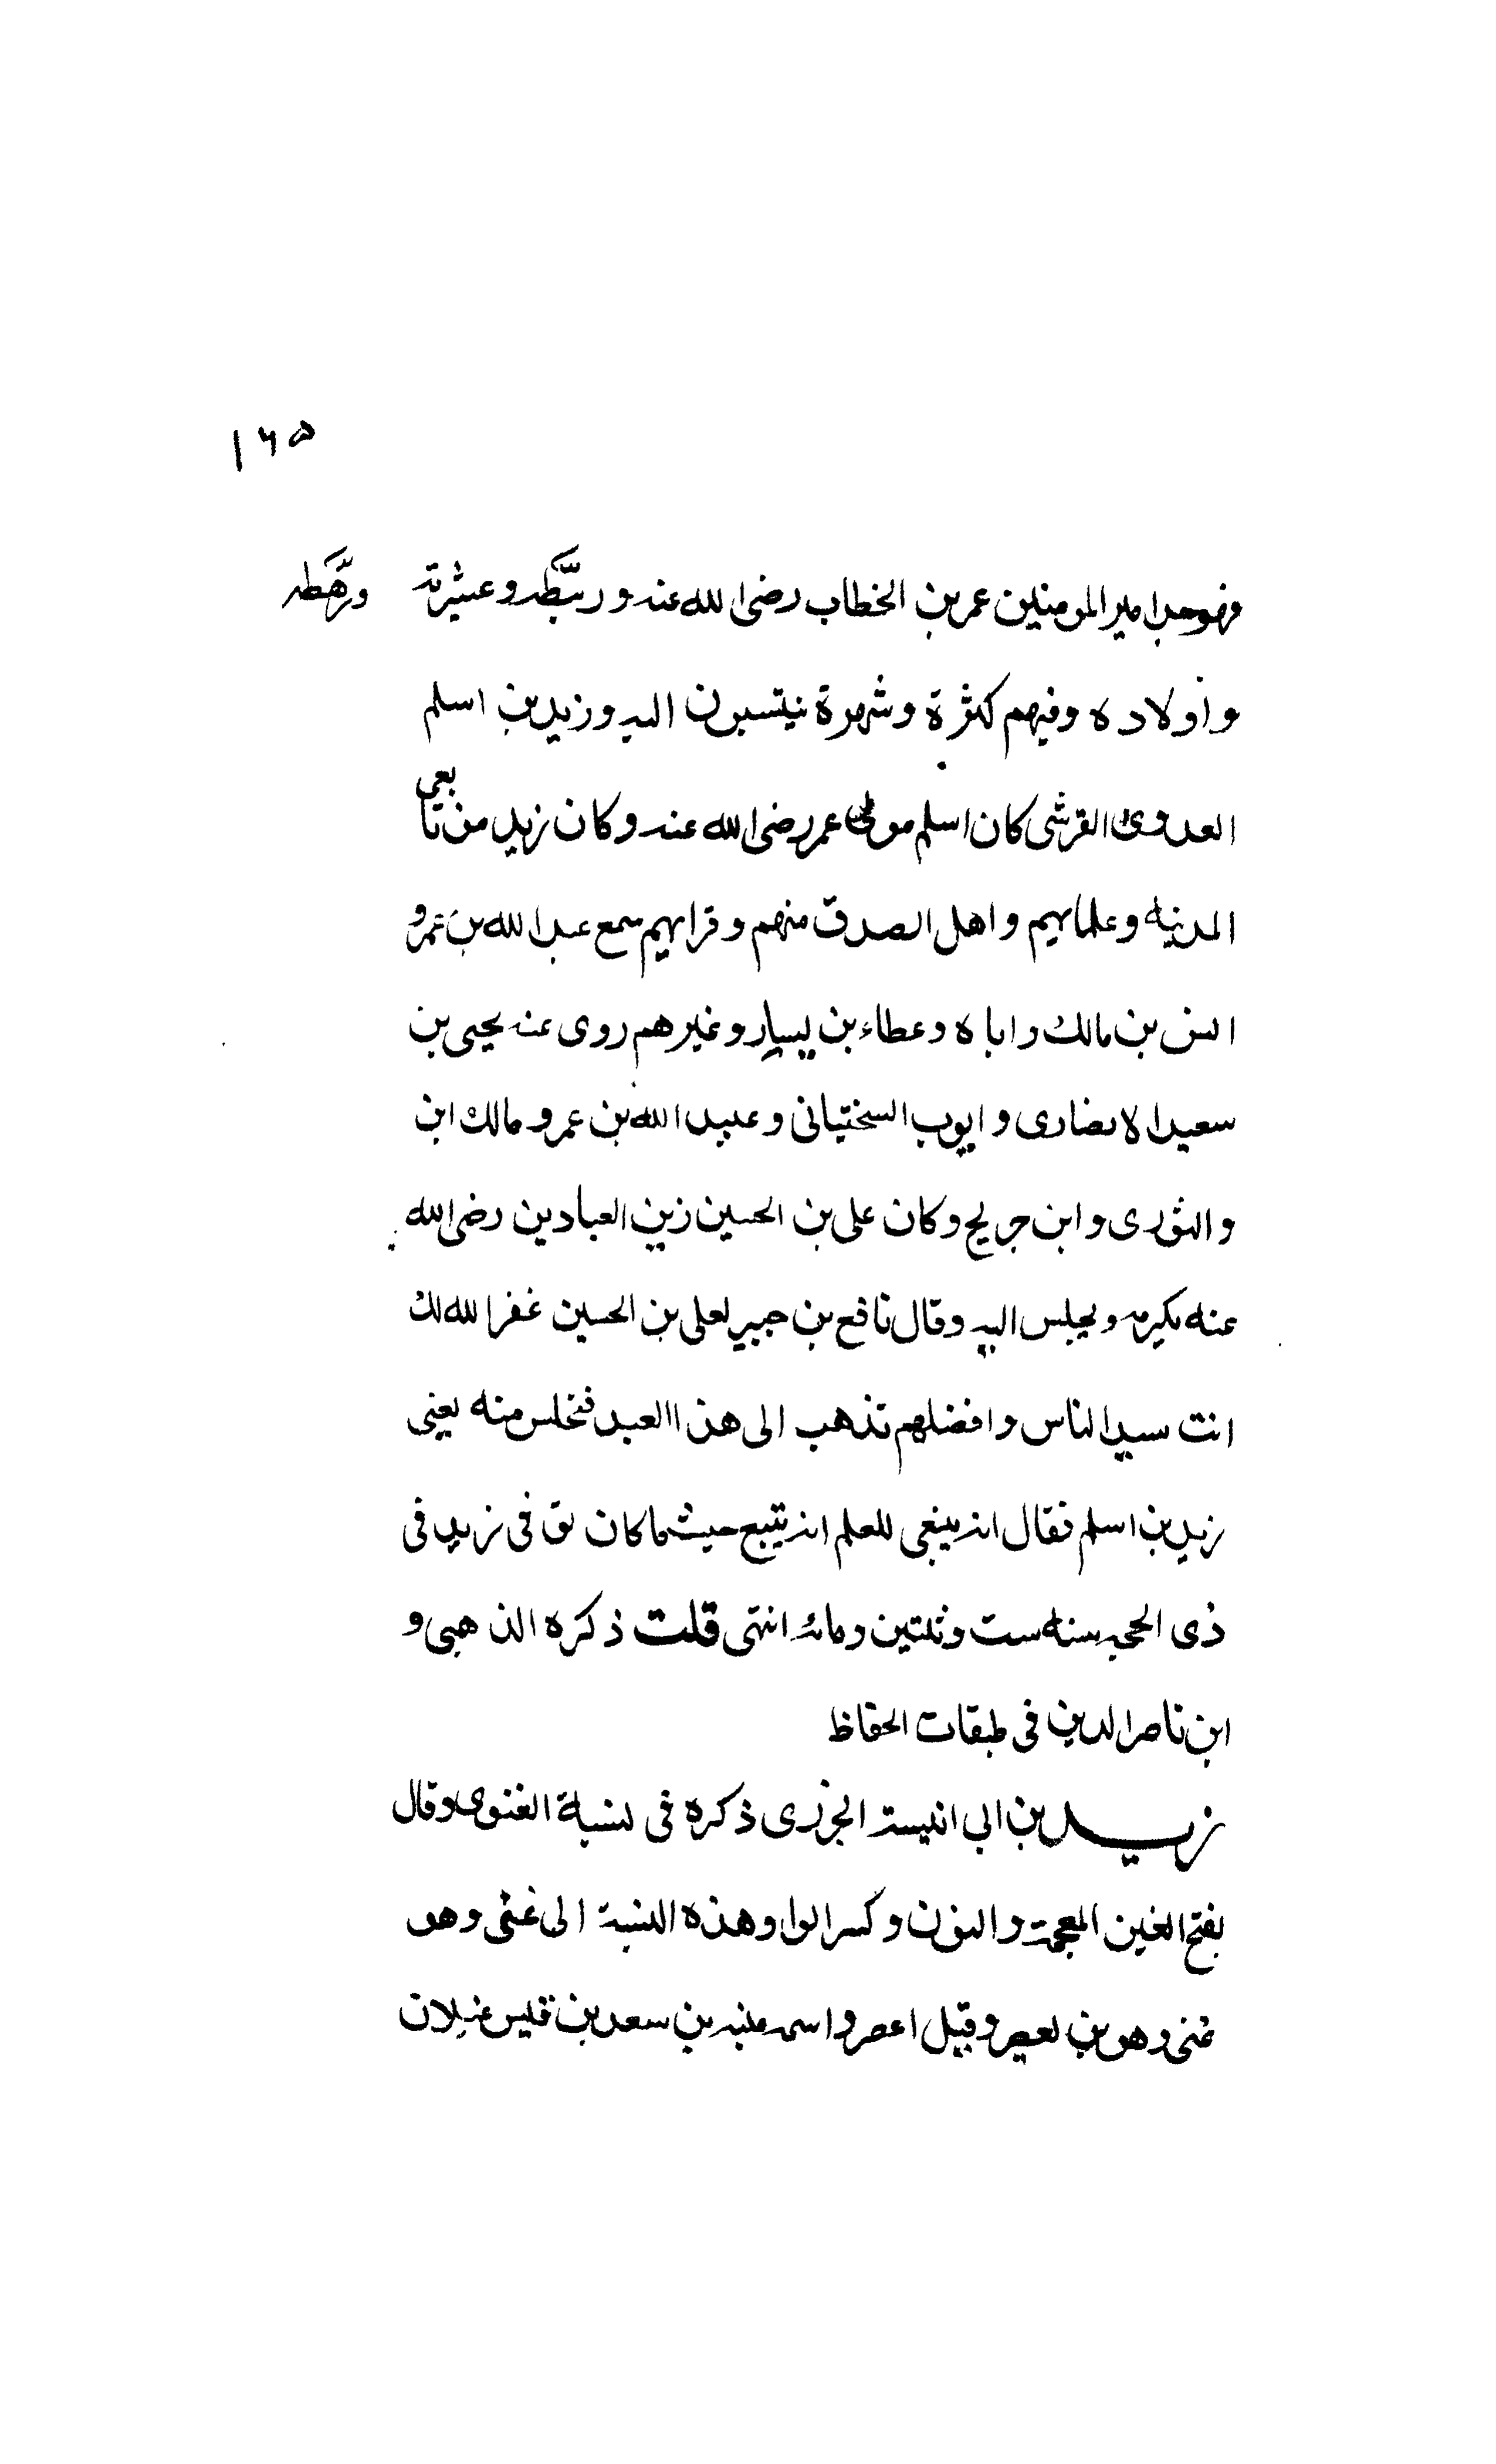 ۱۶۵
فهوجد امير المومنين عمر بن الخطاب رضى الله عنه و ربطه وعشيرته ورهطه
واولاده وفيهم كثرة وشهرة ينتسبون اليه وزيد بن اسلم
العدوى القرشى كان اسلم مولى عمر رضى الله عنه وكان زيد من تابعى
المدينه وعلمايهم واهل الصدق منهم وقرايهم سمع عبد الله بن عمرو
انس بن مالك واباه وعطاء بن يسار وغيرهم روى عنه يحيى بن
سعيد الانصارى وايوب السختيانى وعبيد الله بن عمر و مالك ابن
والثورى وابن جريج وكان على بن الحسين زين العبادين رضى الله
عنه يكرمه ويجلس اليه وقال نافع بن جبير لعلى بن الحسين غفر الله لك
انت سيد الناس وافضلهم تذهب الى هذا العبد فتجلس منه يعنى
زيد بن اسلم فقال انه ينبغى للعلم انه يتبع حيث ما كان توفى زيد فى
ذى الحجه سنه ست وثلثين ومائه انتهى قلت ذكره الذهبى و
ابن ناصر الدين فى طبقات الحفاظ
زيد بن ابى انيسة الجزرى ذكره فى نسبة الغنوى وقال
بفتح الغين المعجمة والنون وكسر الواو هذه النسبة الى غنى وهو
غنى وهو بن يعصر وقيل اعصر واسمه منبه بن سعد بن قيس غيلان